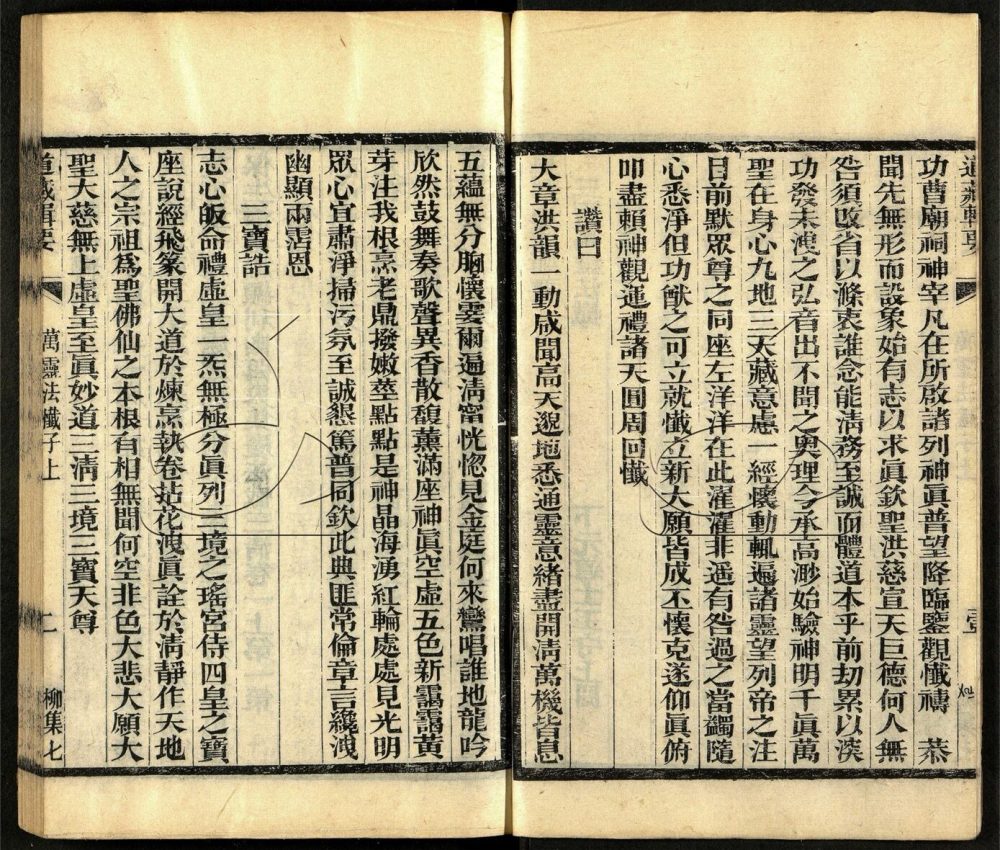 道藏輯要
功曹廟祠神宰凡在所啟諸列神眞普望降臨鑒觀懺禱 恭
聞先無形而設象始有志以求眞欽聖洪慈宣天巨德何人無
咎須改省以滌衷誰念能淸務至誠而體道本乎前劫累以淡
功發未洩之弘音出不開之奧理今承高渺始驗神明千眞萬
聖在身心九地三天藏意慮一經懷動輒遍諸靈望列帝之注
目前默眾尊之同座左洋洋在此濯濯非遥有咎過之當蠲隨
心悉淨但功猷之可立就懺立新大願皆成丕懷克遂仰眞俯
叩盡賴神觀運禮諸天圓周回懺
讚曰
大章洪韻一動咸聞高天邈地悉通靈意緒盡開淸萬機皆息
五蘊無分胸懷雯爾遍淸甯恍惚見金庭何來鸞唱誰地龍吟
欣然鼓舞奏歌聲異香散馥薰滿座神眞空虛五色新靄靄黃
芽注我根烹老鼎撥嫩莖點點是神晶海湧紅輪處處見光明
眾心宜肅淨掃汚氛至誠懇篤普同欽此典匪常倫章言纔洩
幽顯兩霑恩
三寶誥
志心皈命禮虛皇一炁無極分眞列三境之瑤宮侍四皇之寶
座說經飛篆開大道於煉烹執卷拈花洩眞詮於淸靜作天地
人之宗祖爲聖佛仙之本根有相無聞何空非色大悲大願大
聖大慈無上虛皇至眞妙道三淸三境三寶天尊
道藏輯要 萬靈法懺子上 二 柳集七